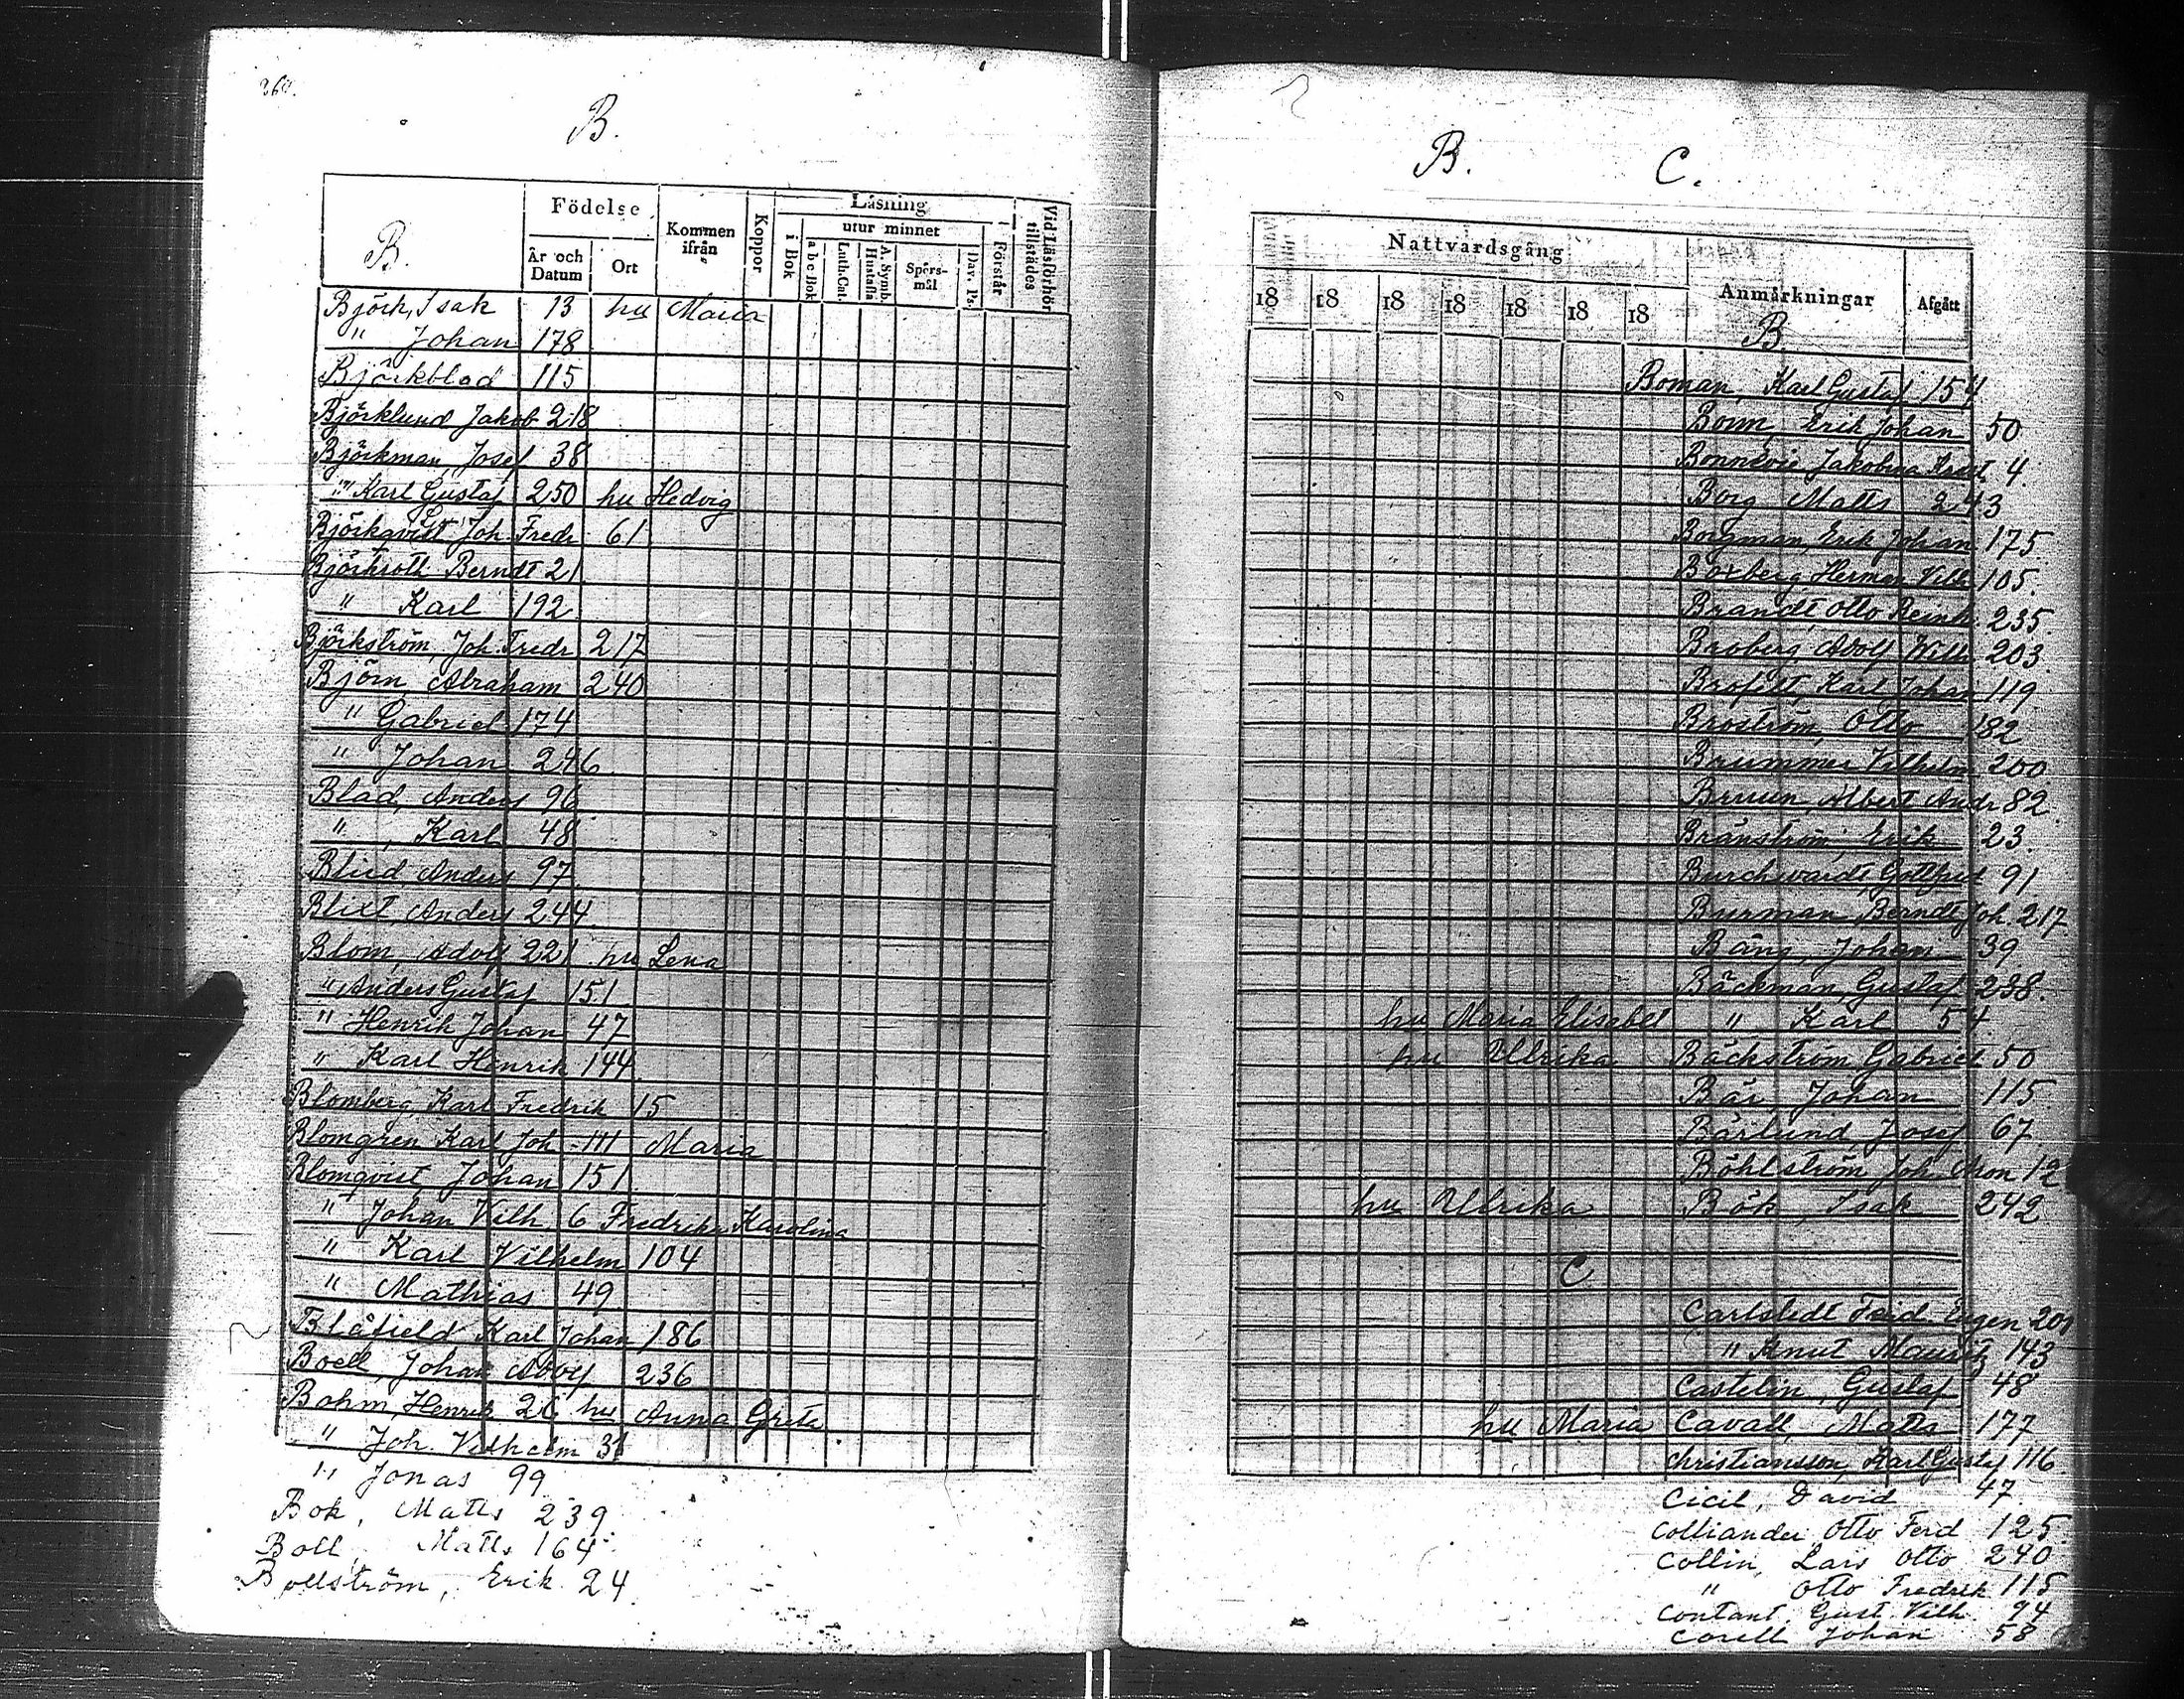 B.
B.
Födelse
År och Datum
Ort
Kommen ifrån
Koppor
Läsning
i Bok
utur minnet
a b c-Bok
Luth. Cat.
A. Symb. Hustafla
Spörs-mål
Dav. Ps.
Förstår
Vid Läsförhör tillstädes
Björk, Isak 13 hu Maria
" Johan 178
Björkblad 115
Björklund Jakob 218
Björkman, Josef 38
" Karl Gustaf 250 hu Hedvig
Björkqvist Joh. Fredr 61
Björkroth Berndt 21
" Karl 192
Björkström, Joh. Fredr 217
Björn, Abraham 240
" Gabriel 174
" Johan 246
Blad, Anders 96
" , Karl 48
Blied, Anders 97
Blixt, Anders 244
Blom, Adolf 221 hu Lena
" Anders Gustaf 151
" Henrik Johan 47
" Karl Henrik 144
Blomberg, Karl Fredrik 15
Blomgren Karl Joh. 111 Maria
Blomqvist, Johan 151
" Johan Vilh. 6 Fredrika Karolina
" Karl Vilhelm 104
" Mathias 49
Blåfield Karl Johan 186
Boell, Johan Adolf 236
Bohm, Henrik 26 hu Anna Greta
" Joh. Vilhelm
" Jonas 99
Bok, Matts 239
Boll, Matts 164
Bollström, Erik 24
B. C.
Nattvardsgång
Anmärkningar
Afgått
18 18 18 18 18 18 18
B.
Boman, Karl Gustaf 154
Bonn, Erik Johan 50
Bonnevie Jakobina Krist. 4
Borg Matts 243
Borgman, Erik Johan 175
Boxberg, Herman Vilh 105.
Brandt, Otto Reinh. 235.
Broberg, Adolf Wilh 203
Brofelt, Karl Johan 119
Broström, Otto 182
Brummer Vilhelm 200
Bruun, Albert Andr 82
Bränström, Erik 23.
Burchwardt, Gottfried 91
Burman, Berndt Joh. 217
Bång, Johan 39
Bäckman, Gustaf 238.
hu Maria Elisabet " Karl 54
hu Ullrika Bäckström Gabriel 50
Bär Johan 115
Bärlund, Josef 67
Böhlström Joh. Aron 12
hu Ullrika Bök, Isak 242
C
Carlstedt Feid. Eugen 201
" Knut Mauritz 143
Castelin, Gustaf 48
hu Maria Cavall, Matts 177
Christiansson, Karl Gustaf 116
Cicil, David 47.
Colliander Otto Ferd 125
Collin, Lars Otto 240
" Otto Fredrik 115
Contant, Gust. Vilh. 94
Corell Johan 58